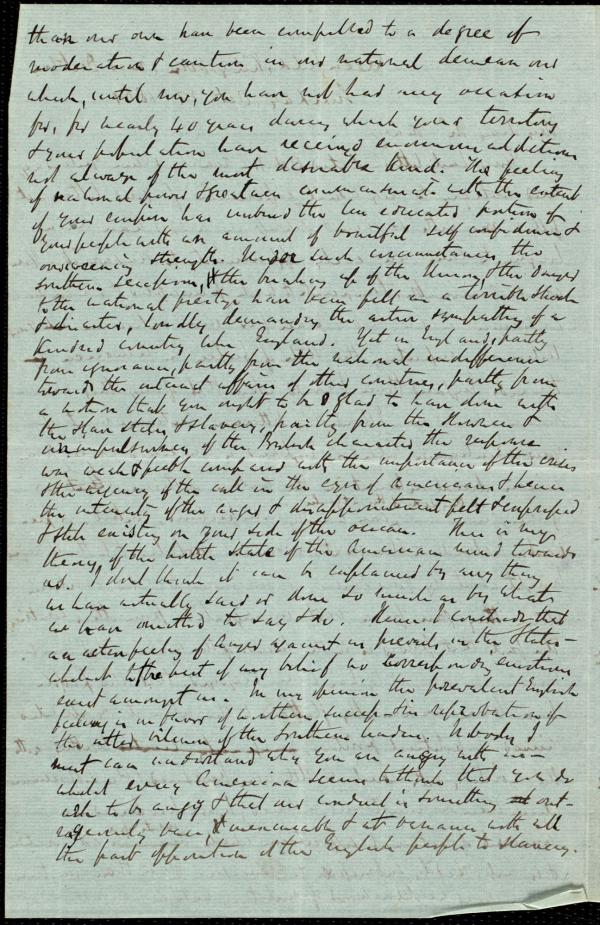 than our own have been compelled to a degree of
moderation & caution in our national demeanour
which, until now, you have not had any occasion
for, for nearly 40 years during which your territory
& your population have received enormous additions
not always of the most desirable kind. The feeling
of national power & greatness commensurate with the extent
of your empire has imbued the less educated portion of
your people with an amount of boastful self confidence &
overweening strength. Under such circumstances, the
southern secession, & the breaking up of the Union, & the danger
to the national prestige have been felt as a terrible shock
& disaster, loudly demanding the active sympathy of a
kindred country like England. Yet in England, partly
from ignorance, partly from the national indifference
towards the internal affairs of other countries, partly from
a notion that you ought to be glad to have done with
the slave states & slavery, partly from the slowness &
unimpulsiveness of the British character the response
was weak & feeble compared with the importance of the crisis
& the urgency of the call in the eyes of Americans & hence
the intensity of the anger & disappointment felt & expressed
& still existing on your side of the ocean. This is my
theory, of the hostile state of the American mind towards
us. I don't think it can be explained by anything
we have actually said or done so much as by what
we have omitted to say & do. Hence I conclude that
an active feeling of anger against us prevails in the States –
which to the best of my belief no corresponding emotion
exists amongst us. In my opinion the prevalent English
feeling is in favor of northern success & in reprobation of
the utter villainy of the Southern leaders. Nobody I
meet can understand why you are angry with us –
whilst every American seems to think that you do
well to be angry & that our conduct is something out-
rageously base, & inexcusable & at variance with all
the past opposition of the English people to slavery.